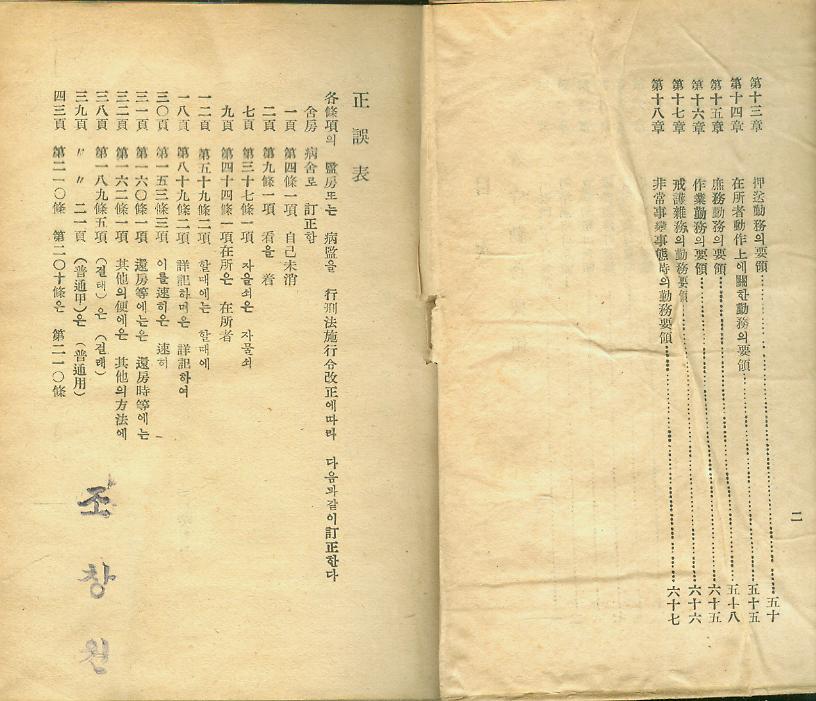 二
第十三章 押送勤務의要領 五十
第十四章 在所者動作上에關한勤務의要領 五十五
第十五章 庶務勤務의要領 五十八
第十六章 作業勤務의要領 六十五
第十七章 戒護雜務의勤務要領 六十六
第十八章 非常事變事態時의勤務要領 六十七
正誤表
各條項의 監房또는 病監을 行刑法施行令改正에따라 다음과같이訂正한다
舍房 病舍로 訂正함
一頁 第四條一項 自己未消
二頁 第九條一項 看을 着
七頁 第三十七條一項 자을쇠은 자물쇠
九頁 第四十四條一項在所은 在所者
一二頁 第五十九條二項 할대에는 할때에
一八頁 第八十九條二項 詳記하며은 詳記하여
三〇頁 第一五三條三項 이를速히은 速히
三一頁 第一六〇條一項 還房等에는은 還房時等에는
三二頁 第一六二條一項 其他의便에은 其他의方法에
三八頁 第一八九條五項 은
三九頁 〃 〃 二一頁 (普通甲)은 (普通用)
四三頁 第二一〇條 第二〇十條은 第二一〇條
조창원